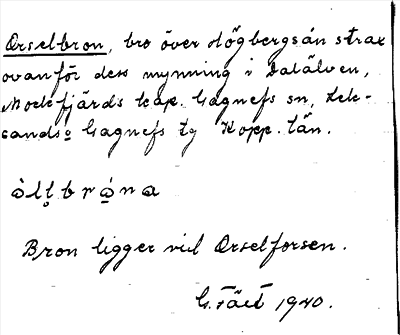 Orselbron, bro över Högbergsån strax
ovanför dess mynning i Dalälven,
Mockfjärds kap. Gagnefs sn, Lek-
sands o Gagnefs tg Kopp. län.
Bron ligger vid Orselforsen.
1940.